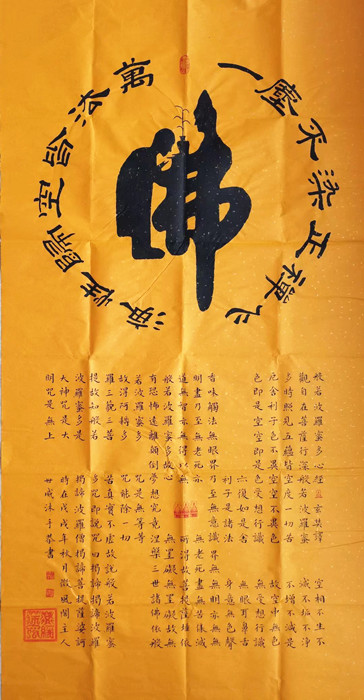 萬法皆空歸性海
一塵不染正禪心
佛
般若波羅蜜多心經 玄奘譯
觀自在菩薩行深般若波羅蜜
多時照見五蘊皆空度一切苦
厄舍利子色不異空空不異
色即是空空即是色受想行識
亦復如是舍
利子是諸法
空相不生不
滅不垢不淨
不增不減是
故空中無色
無受想行識
無眼耳鼻舌
身意無色聲
香味觸法無眼界乃至無意識界無無明亦無無
明盡乃至無老死亦
無老死盡無苦集滅
道無智亦無得以無
所得故菩提薩埵依
般若波羅蜜多故心
無罣礙無罣礙故無
有恐怖遠離顛倒夢想究竟涅槃三世諸佛依般
若波羅蜜多
故得阿耨多
羅三藐三菩
提故知般若
波羅蜜多是
大神咒是大
明咒是無上
咒是無等等
咒能除一切
苦真實不虛故說般若波羅蜜
多咒即說咒曰揭諦揭諦波羅
揭諦波羅僧揭諦菩提薩婆訶
時在戊戌年秋月徽風閣主人
世成沐手恭書